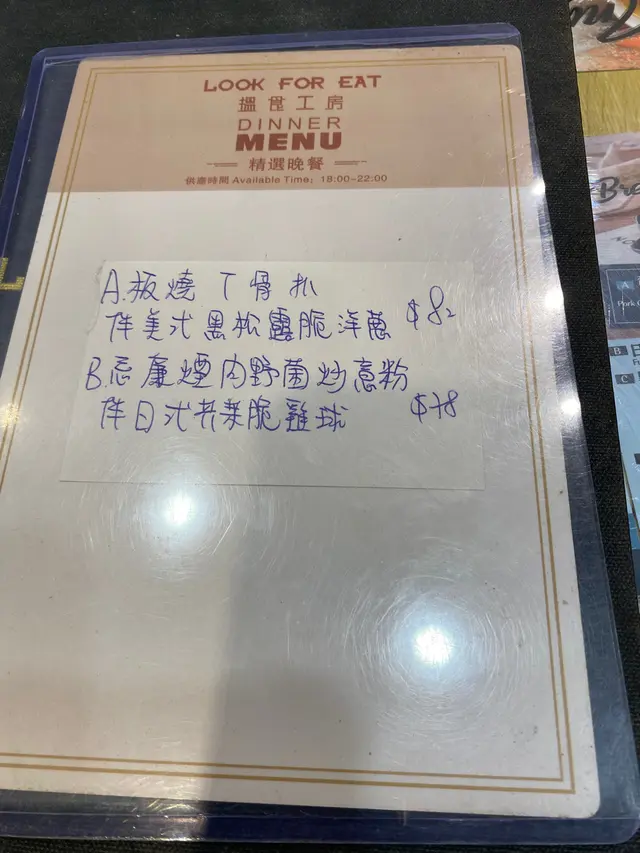 LOOK FOR EAT
搵食工房
DINNER
MENU
精選晚餐
供應時間 Available Time: 18:00-22:00
A.板燒丁骨扒
伴美式黑松露脆洋蔥 $82
B.忌廉煙肉野菌炒意粉
伴日式芥末脆雞球 $78
Bre
Pork
B
C